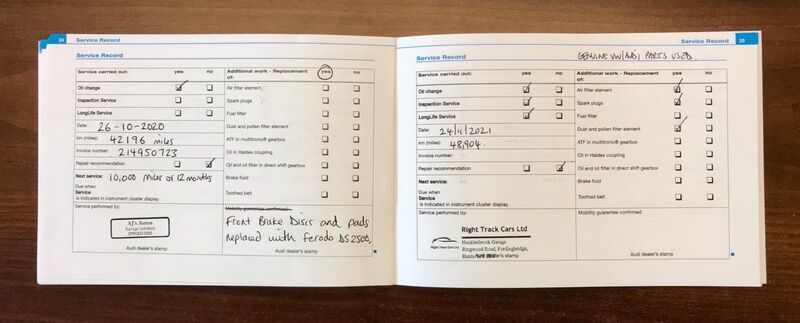 24 Service Record
Service Record
Service carried out: yes no
Oil change
Inspection Service
LongLife Service
Date: 26-10-2020
km (miles): 42196 miles
Invoice number: 214950723
Repair recommendation
Next service: 10,000 miles or 12 months
Due when
Service
is indicated in instrument cluster display
Service performed by:
AJ's Autos
Garage Services
Audi dealer's stamp
Additional work - Replacement of: yes no
Air filter element
Spark plugs
Fuel filter
Dust and pollen filter element
ATF in multitronic® gearbox
Oil in Haldex coupling
Oil and oil filter in direct shift gearbox
Brake fluid
Toothed belt
Mobility guarantee confirmed:
Front Brake Discs and pads
replaced with Ferodo DS2500.
Service Record 25
Service Record
GENUINE VW/AUDI PARTS USED.
Service carried out: yes no
Oil change
Inspection Service
LongLife Service
Date: 24/11/2021
km (miles): 48,904.
Invoice number:
Repair recommendation
Next service:
Due when
Service
is indicated in instrument cluster display
Service performed by:
Right Track Cars Ltd
Right Track Cars Ltd
Hucklesbrook Garage
Ringwood Road, Fordingbridge,
Hants
Additional work - Replacement of: yes no
Air filter element
Spark plugs
Fuel filter
Dust and pollen filter element
ATF in multitronic® gearbox
Oil in Haldex coupling
Oil and oil filter in direct shift gearbox
Brake fluid
Toothed belt
Mobility guarantee confirmed: